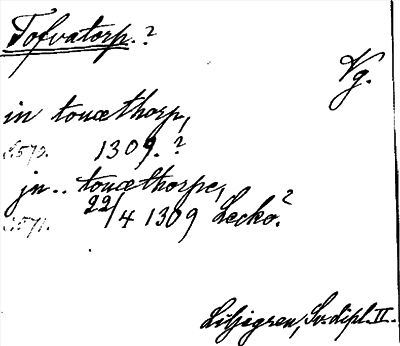 Tofvatorp.?
Vg.
in touæthorp,
S. 570. 1309.?
jn.. touæthorpe,
S. 571. 22/4 1309 Lecko.?
Liljegren, Sv. dipl. II.